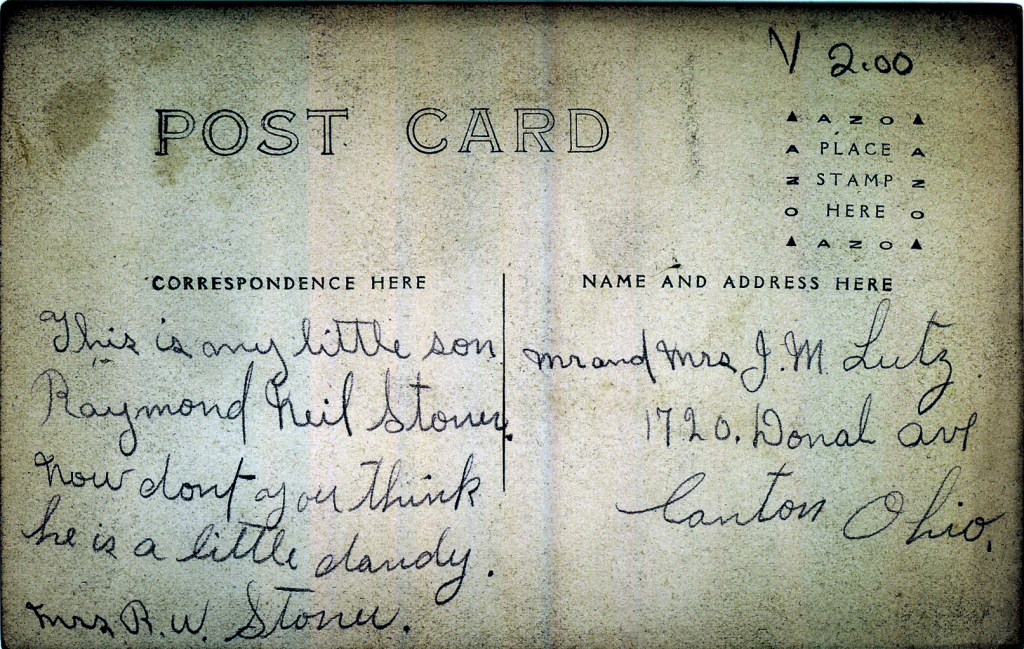 V 2.00
POST CARD
▲ A Z O ▲
A PLACE A
Z STAMP Z
O HERE O
▲ A Z O ▲
CORRESPONDENCE HERE
This is my little son
Raymond Neil Stoner.
now dont you think
he is a little dandy.
mrs R.W. Stoner.
NAME AND ADDRESS HERE
mr and mrs J. M. Lutz
1720. Donal ave
Canton Ohio.